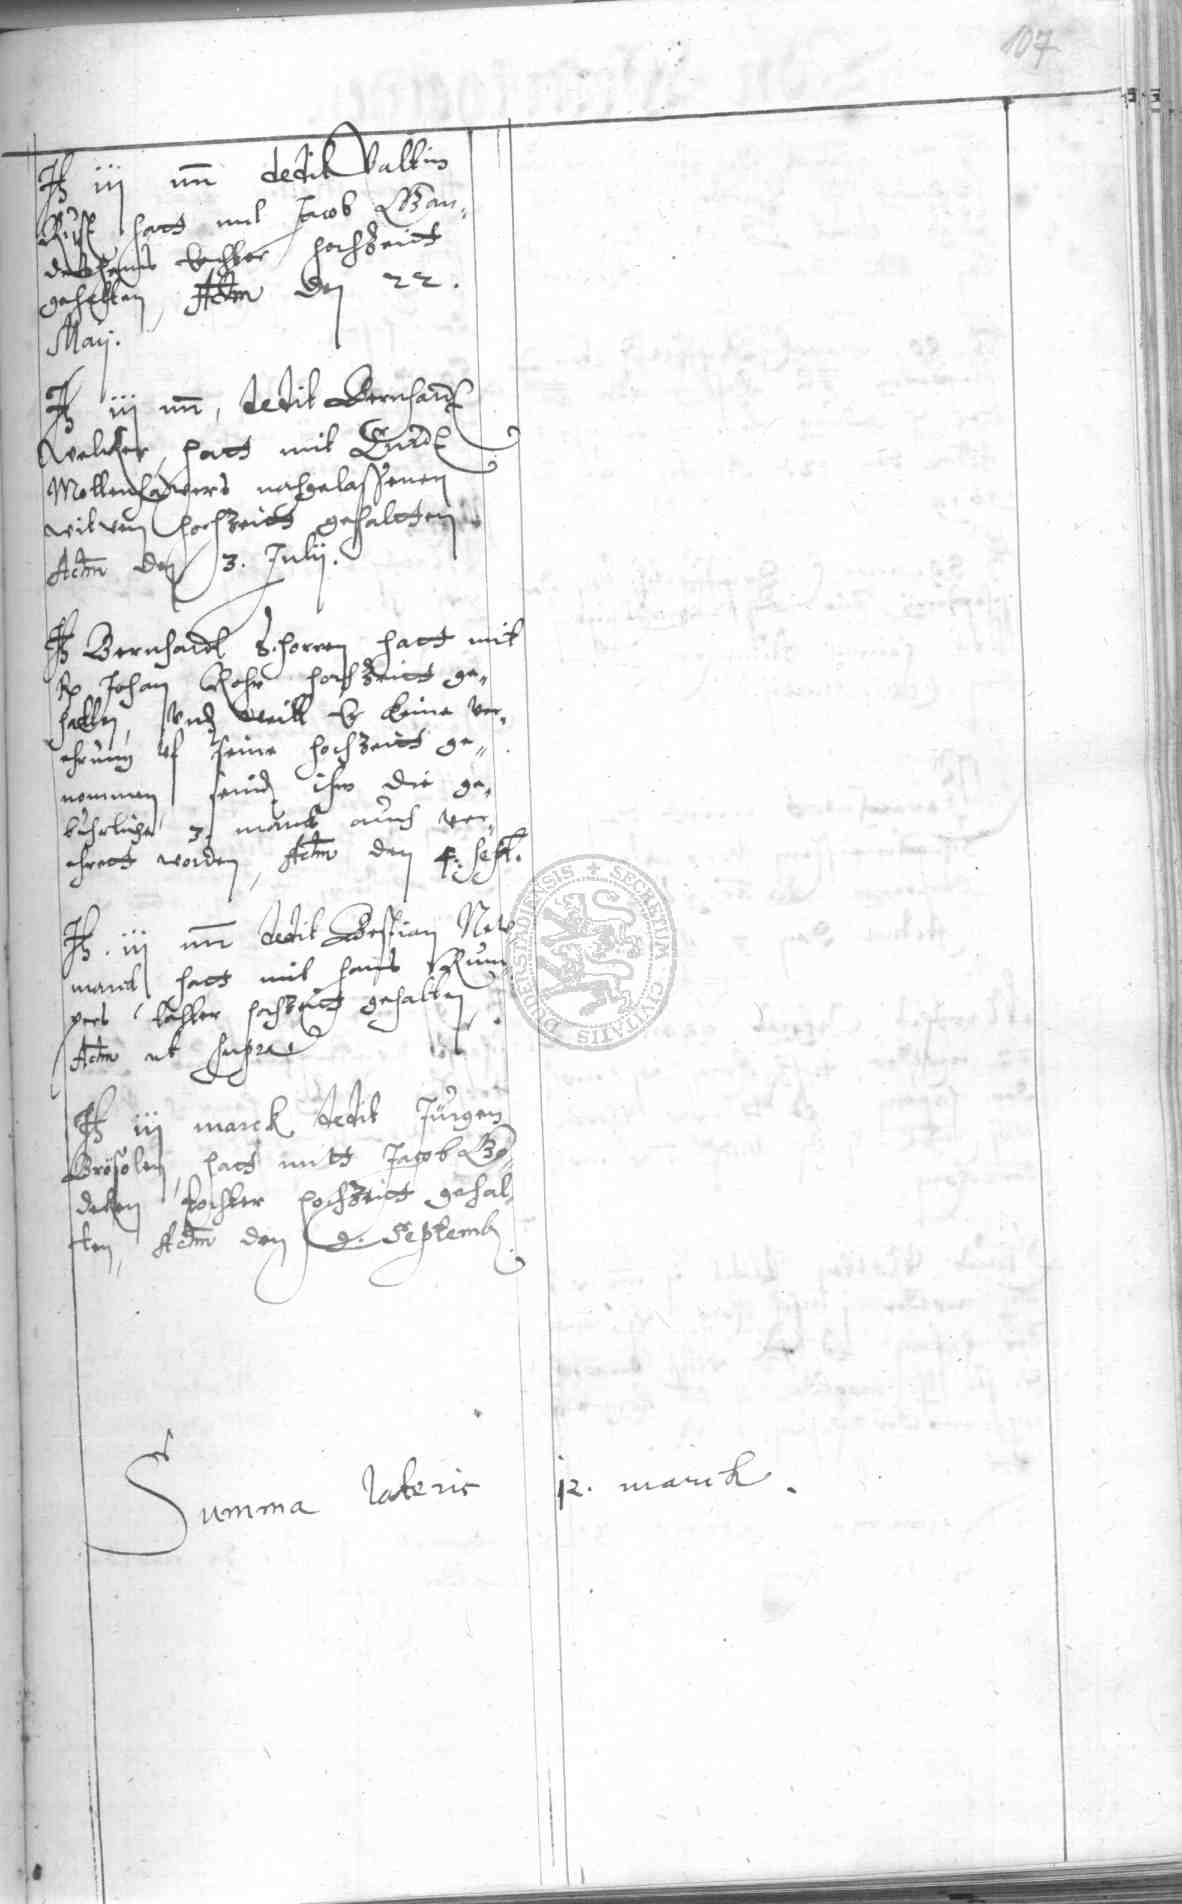 107
It iij mr dedit Valtin
hatt mit Jacob Wan¬
tochter hochzeitt
gehalten, Actum den 22.
Maij.
It iij mr, dedit Bernhardt
Welcker, hatt mit Curdt
Mollenhawers nachgelaßenen
witwen hochzeitt gehaltten
Actum den 3. Julij.
It Bernhardt hatt mit
Johan hochzeitt ge¬
halten, Und weill Er keine ver¬
ehrung uf seine hochzeitt ge¬
nommen seind ihm die ge¬
buhrliche 3. marck auch ver¬
ehrett worden, Actum den 4. Sept.
It. iij mr dedit Bestian New
marck hatt mit Hans
tochter hochzeitt gehalten,
Actum ut supra
It iij marck dedit Jürgen
hatt mitt Jacob Bo¬
deken tochter hochzeitt gehal¬
ten, Actum den 9. Septemb.
DUDERSTADIENSIS + SECRETUM CIVITATIS
Summa lateris 12. marck.